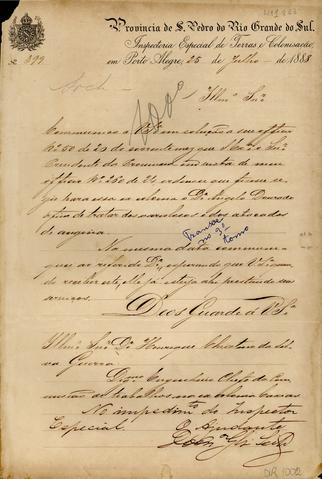 Provincia de S. Pedro do Rio Grande do Sul.
Inspectoria Especial de Terras e Colonisação
em Porto Alegre, 25 de Julho de 1888
Nº 399
Arch
Illmo Snr.
Communico a VSª em solução a seu officio
Nº 50 de 23 do corrente mez que S. Exª o Snr
Presidente da Provincia em vista de meu
officio Nº de 24, ordenou que fosse se-
para essa colonia o Dr Angelo Dourado
afim de tratar dos variolosos e dos atacados
de angina.
Transc.
no 3º
tomo
Na mesma data communi-
quei ao referido Dr, esperando que VSª quan-
do receber este, elle já esteja ahi prestando seus
serviços.
Deos Guarde á VSª
Illmo Snr Dr Henrique Christino da Sil-
va Guerra.
Dmo Engenheiro Chefe da Com-
missão de trabalhos na ex colonia Caxias
No impedimto do Inspector
Especial
O Ajudante
DR 1002